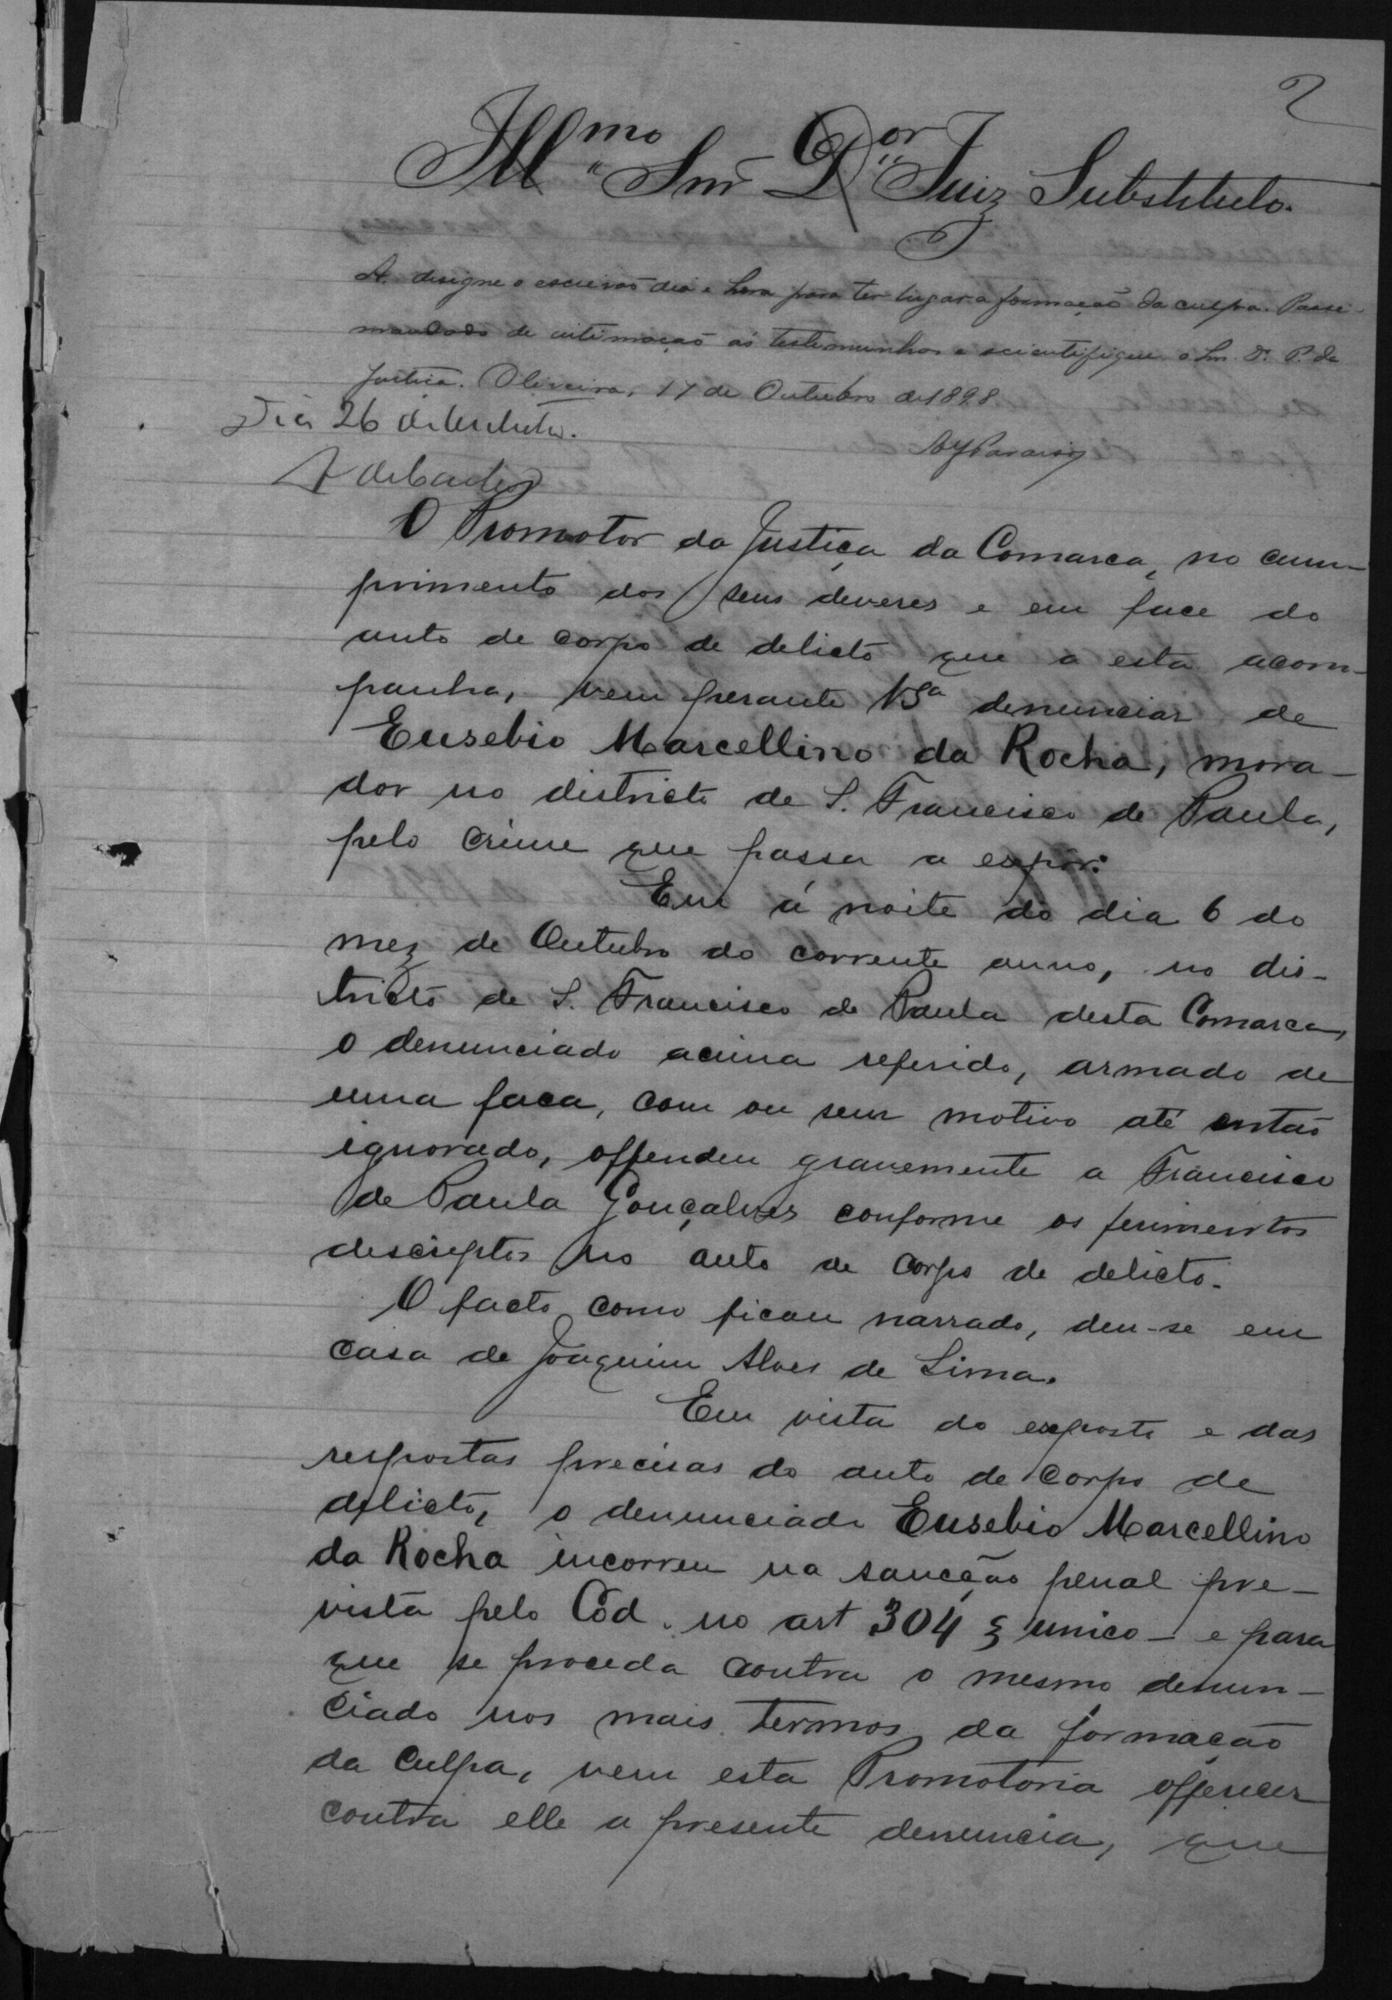 2
Illmo Snr Dor Juiz Substituto.
A. designe o escrivão dia e hora para ter lugar a formação da culpa. Passe
mandado de intimação ás testemunhas e scientifique o Snr. Dr. P. da
Justiça. Oliveira, 17 de Outubro de 1898
Dia 26 de Outubro.
O Promotor da Justiça da Comarca, no cum-
primento dos seus deveres e em face do
auto de corpo de delicto que a esta acom-
panha, vem perante VSa denunciar de
Eusebio Marcellino da Rocha, mora-
dor no districto de S. Francisco de Paula,
pelo crime que passa a expôr:
Em á noite do dia 6 do
mez de Outubro do corrente anno, no dis-
tricto de S. Francisco de Paula desta Comarca,
o denunciado acima referido, armado de
uma faca, com ou sem motivo até então
ignorado, offendeu gravemente a Francisco
de Paula Gonçalves conforme os ferimentos
descriptos no auto de corpo de delicto.
O facto, como ficou narrado, deu-se em
casa de Joaquim Alves de Lima.
Em vista do exposto e das
respostas precisas do auto de corpo de
delicto, o denunciado Eusebio Marcellino
da Rocha incorreu na sancção penal pre-
vista pelo Cod. no art 304 § unico - e para
que se proceda contra o mesmo denun-
ciado nos mais termos da formação
da culpa, vem esta Promotoria offerecer
contra elle a presente denuncia, que